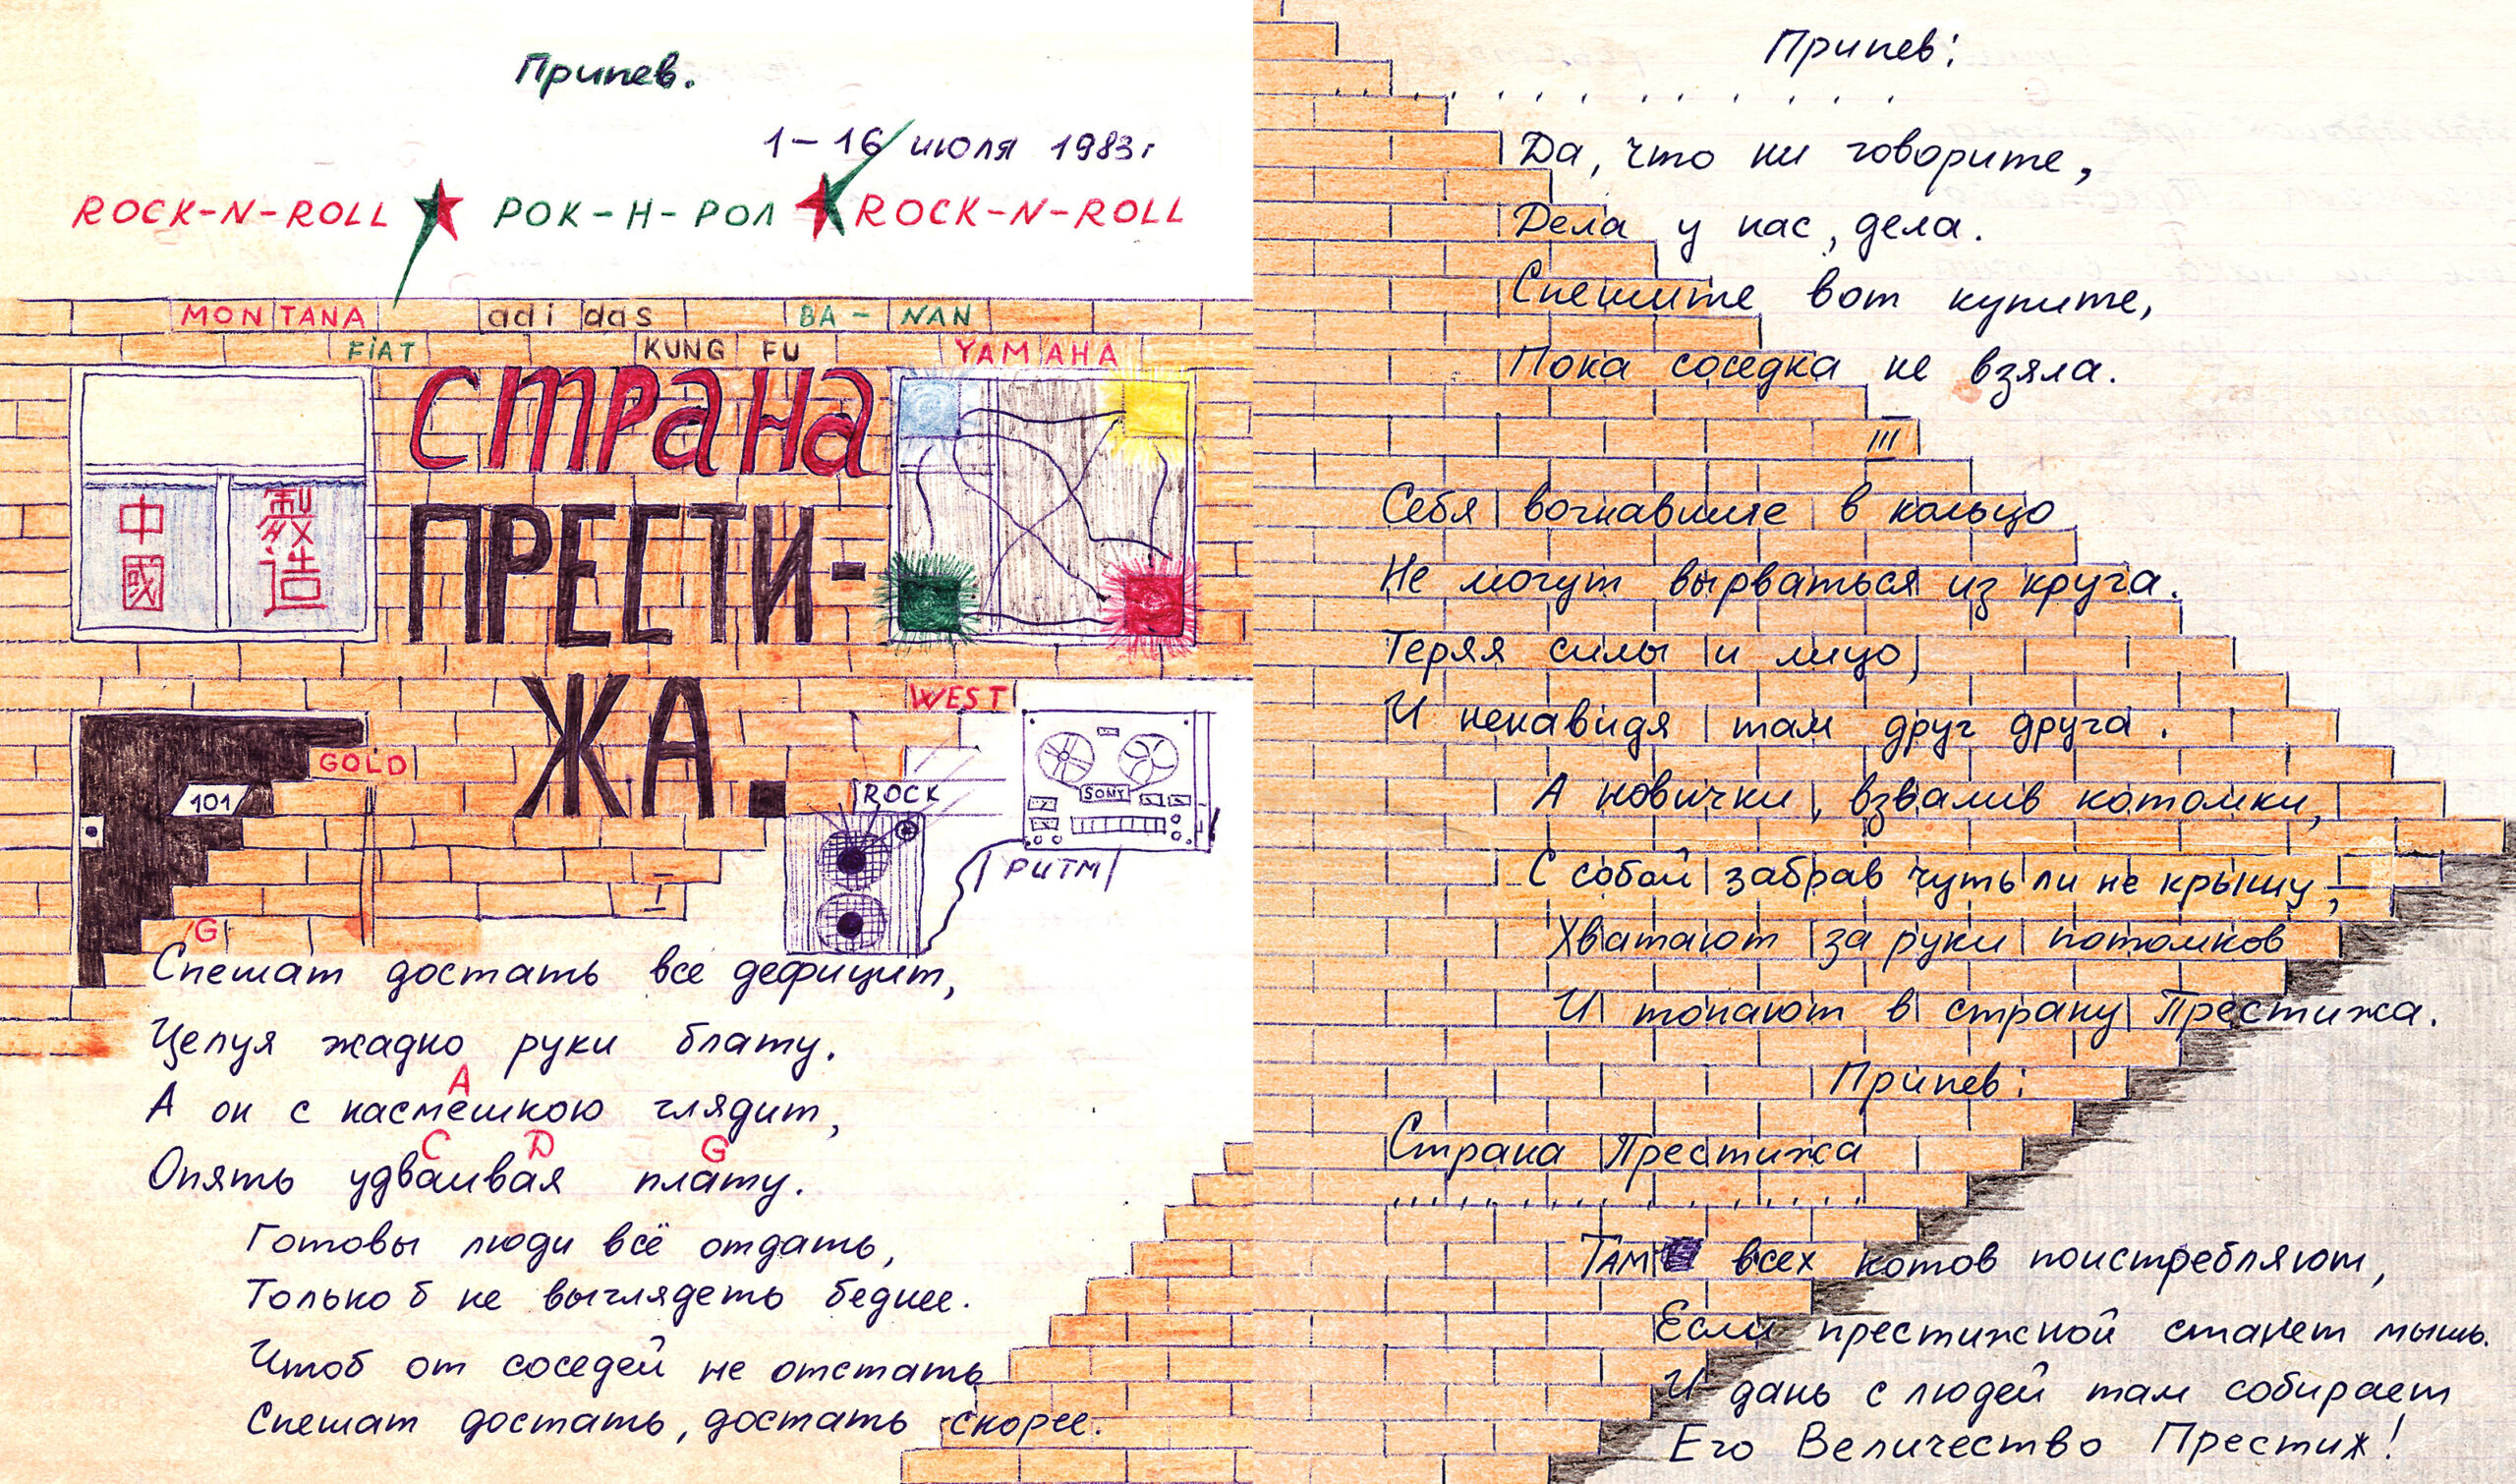 Припев.
1-16 июля 1983г
ROCK-N-ROLL ★ РОК-Н-РОЛ ★ ROCK-N-ROLL
MONTANA adidas BA-NAN
FiAT KUNG FU YAMAHA
СТРАНА
ПРЕСТИ-
ЖА.
中國
製造
WEST
GOLD
101
ROCK
SONY
РИТМ
I
G
Спешат достать все дефицит,
Целуя жадно руки блату.
A
А он с насмешкою глядит,
C D G
Опять удваивая плату.
Готовы люди всё отдать,
Только б не выглядеть беднее.
Чтоб от соседей не отстать
Спешат достать, достать скорее.
Припев:
. . . . . . . . . . . .
Да, что ни говорите,
Дела у нас, дела.
Спешите вот купите,
Пока соседка не взяла.
III
Себя вогнавшие в кольцо
Не могут вырваться из круга.
Теряя силы и лицо,
И ненавидя там друг друга.
А новички, взвалив котомки,
С собой забрав чуть ли не крышу,
Хватают за руки потомков
И топают в страну Престижа.
Припев:
Страна Престижа
. . . . . . . . . . . .
Там всех котов поистребляют,
Если престижной станет мышь.
И дань с людей там собирает
Его Величество Престиж!